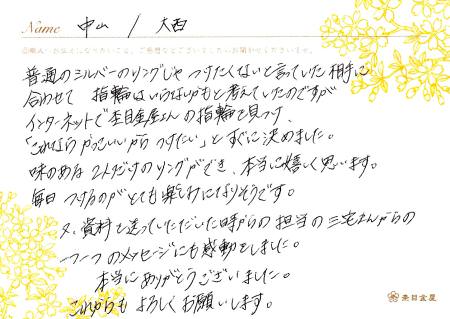 Name 中山 / 大西
普通のシルバーのリングじゃつけたくないと言っていた相手に
合わせて 指輪はいらないかもと考えていたのですが
インターネットで杢目金屋さんの指輪を見つけ、
「これならかっこいいからつけたい」とすぐに決めました。
味のある2人だけのリングができ、本当に嬉しく思います。
毎日つけるのがとても楽しみになりそうです。
又、資料を送っていただいた時からの担当の三宅さんからの
一つ一つのメッセージにも感動をしました。
本当にありがとうございました。
これからもよろしくお願いします。
杢目金屋